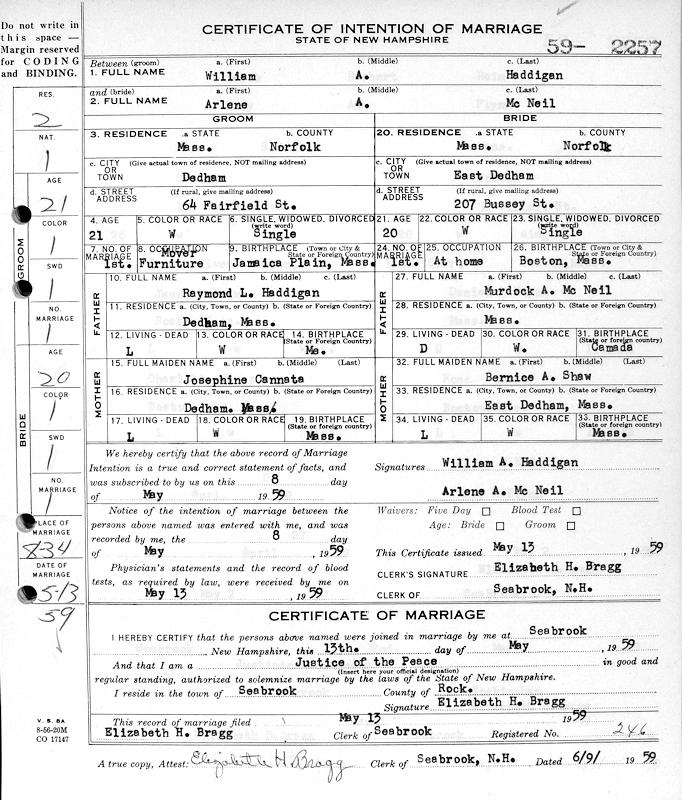 Do not write in
this space —
Margin reserved
for CODING
and BINDING.
CERTIFICATE OF INTENTION OF MARRIAGE
STATE OF NEW HAMPSHIRE
59- 2257
Between (groom) a. (First) b. (Middle) c. (Last)
1. FULL NAME William A. Haddigan
and (bride) a. (First) b. (Middle) c. (Last)
2. FULL NAME Arlene A. Mc Neil
GROOM BRIDE
3. RESIDENCE .a STATE b. COUNTY 20. RESIDENCE a. STATE b. COUNTY
Mass. Norfolk Mass. Norfolk
c. CITY OR TOWN (Give actual town of residence, NOT mailing address) c. CITY OR TOWN (Give actual town of residence, NOT mailing address)
Dedham East Dedham
d. STREET ADDRESS (If rural, give mailing address) d. STREET ADDRESS (If rural, give mailing address)
64 Fairfield St. 207 Bussey St.
4. AGE 5. COLOR OR RACE 6. SINGLE, WIDOWED, DIVORCED (write word) 21. AGE 22. COLOR OR RACE 23. SINGLE, WIDOWED, DIVORCED (write word)
21 W Single 20 W Single
7. NO. OF MARRIAGE 8. OCCUPATION 9. BIRTHPLACE (Town or City & State or Foreign Country) 24. NO. OF MARRIAGE 25. OCCUPATION 26. BIRTHPLACE (Town or City & State or Foreign Country)
1st. Mover Furniture Jamaica Plain, Mass. 1st. At home Boston, Mass.
FATHER 10. FULL NAME a. (First) b. (Middle) c. (Last) FATHER 27. FULL NAME a. (First) b. (Middle) c. (Last)
Raymond L. Haddigan Murdock A. Mc Neil
11. RESIDENCE a. (City, Town, or County) b. (State or Foreign Country) 28. RESIDENCE a. (City, Town, or County) b. (State or Foreign Country)
Dedham, Mass. Mass.
12. LIVING - DEAD 13. COLOR OR RACE 14. BIRTHPLACE (State or Foreign Country) 29. LIVING - DEAD 30. COLOR OR RACE 31. BIRTHPLACE (State or Foreign country)
L W Me. D W. Camada
MOTHER 15. FULL MAIDEN NAME a. (First) b. (Middle) (Last) MOTHER 32. FULL MAIDEN NAME a. (First) b. (Middle) (Last)
Josephine Cannata Bernice A. Shaw
16. RESIDENCE a. (City, Town, or County) b. (State or Foreign Country) 33. RESIDENCE a. (City, Town, or County) b. (State or Foreign Country)
Dedham. Mass. East Dedham, Mass.
17. LIVING - DEAD 18. COLOR OR RACE 19. BIRTHPLACE (State or Foreign country) 34. LIVING - DEAD 35. COLOR OR RACE BIRTHPLACE (State or Foreign country)
L W Mass. L W Mass.
We hereby certify that the above record of Marriage
Intention is a true and correct statement of facts, and
was subscribed to by us on this 8 day
of May 19 59
Signatures William A. Haddigan
Arlene A. Mc Neil
Notice of the intention of marriage between the
persons above named was entered with me, and was
recorded by me, the 8 day
of May , 19 59
Physician's statements and the record of blood
tests, as required by law, were received by me on
May 13 , 19 59
Waivers: Five Day Blood Test
Age: Bride Groom
This Certificate issued May 13 , 19 59
CLERK'S SIGNATURE Elizabeth H. Bragg
CLERK OF Seabrook, N.H.
CERTIFICATE OF MARRIAGE
I HEREBY CERTIFY that the persons above named were joined in marriage by me at Seabrook
, New Hampshire, this 13th. day of May , 19 59
And that I am a Justice of the Peace in good and
(Insert here your official designation)
regular standing, authorized to solemnize marriage by the laws of the State of New Hampshire.
I reside in the town of Seabrook County of Rock.
Signature Elizabeth H. Bragg
This record of marriage filed May 13 19 59
Elizabeth H. Bragg Clerk of Seabrook Registered No. 246
A true copy, Attest: Elizabeth H. Bragg Clerk of Seabrook, N.H. Dated 6/9/ 19 59
RES.
2
NAT.
1
AGE
21
COLOR
1
GROOM
SWD
1
NO. MARRIAGE
1
AGE
20
COLOR
1
BRIDE
SWD
1
NO. MARRIAGE
1
PLACE OF MARRIAGE
834
DATE OF MARRIAGE
5-13
59
V. S. 8A
8-56-20M
CO 17147